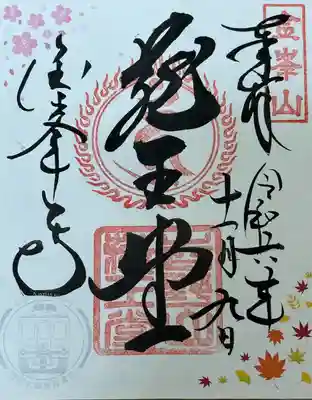 金峯山
奉拝
令和六年
十一月九日
蔵王堂
金峯山寺